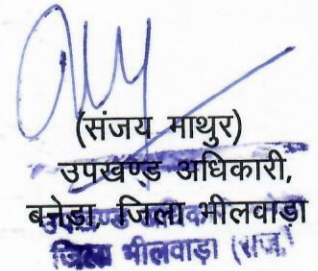 (संजय माथुर)
उपखण्ड अधिकारी,
बनेड़ा, जिला भीलवाडा
जिला भीलवाड़ा (राज.)